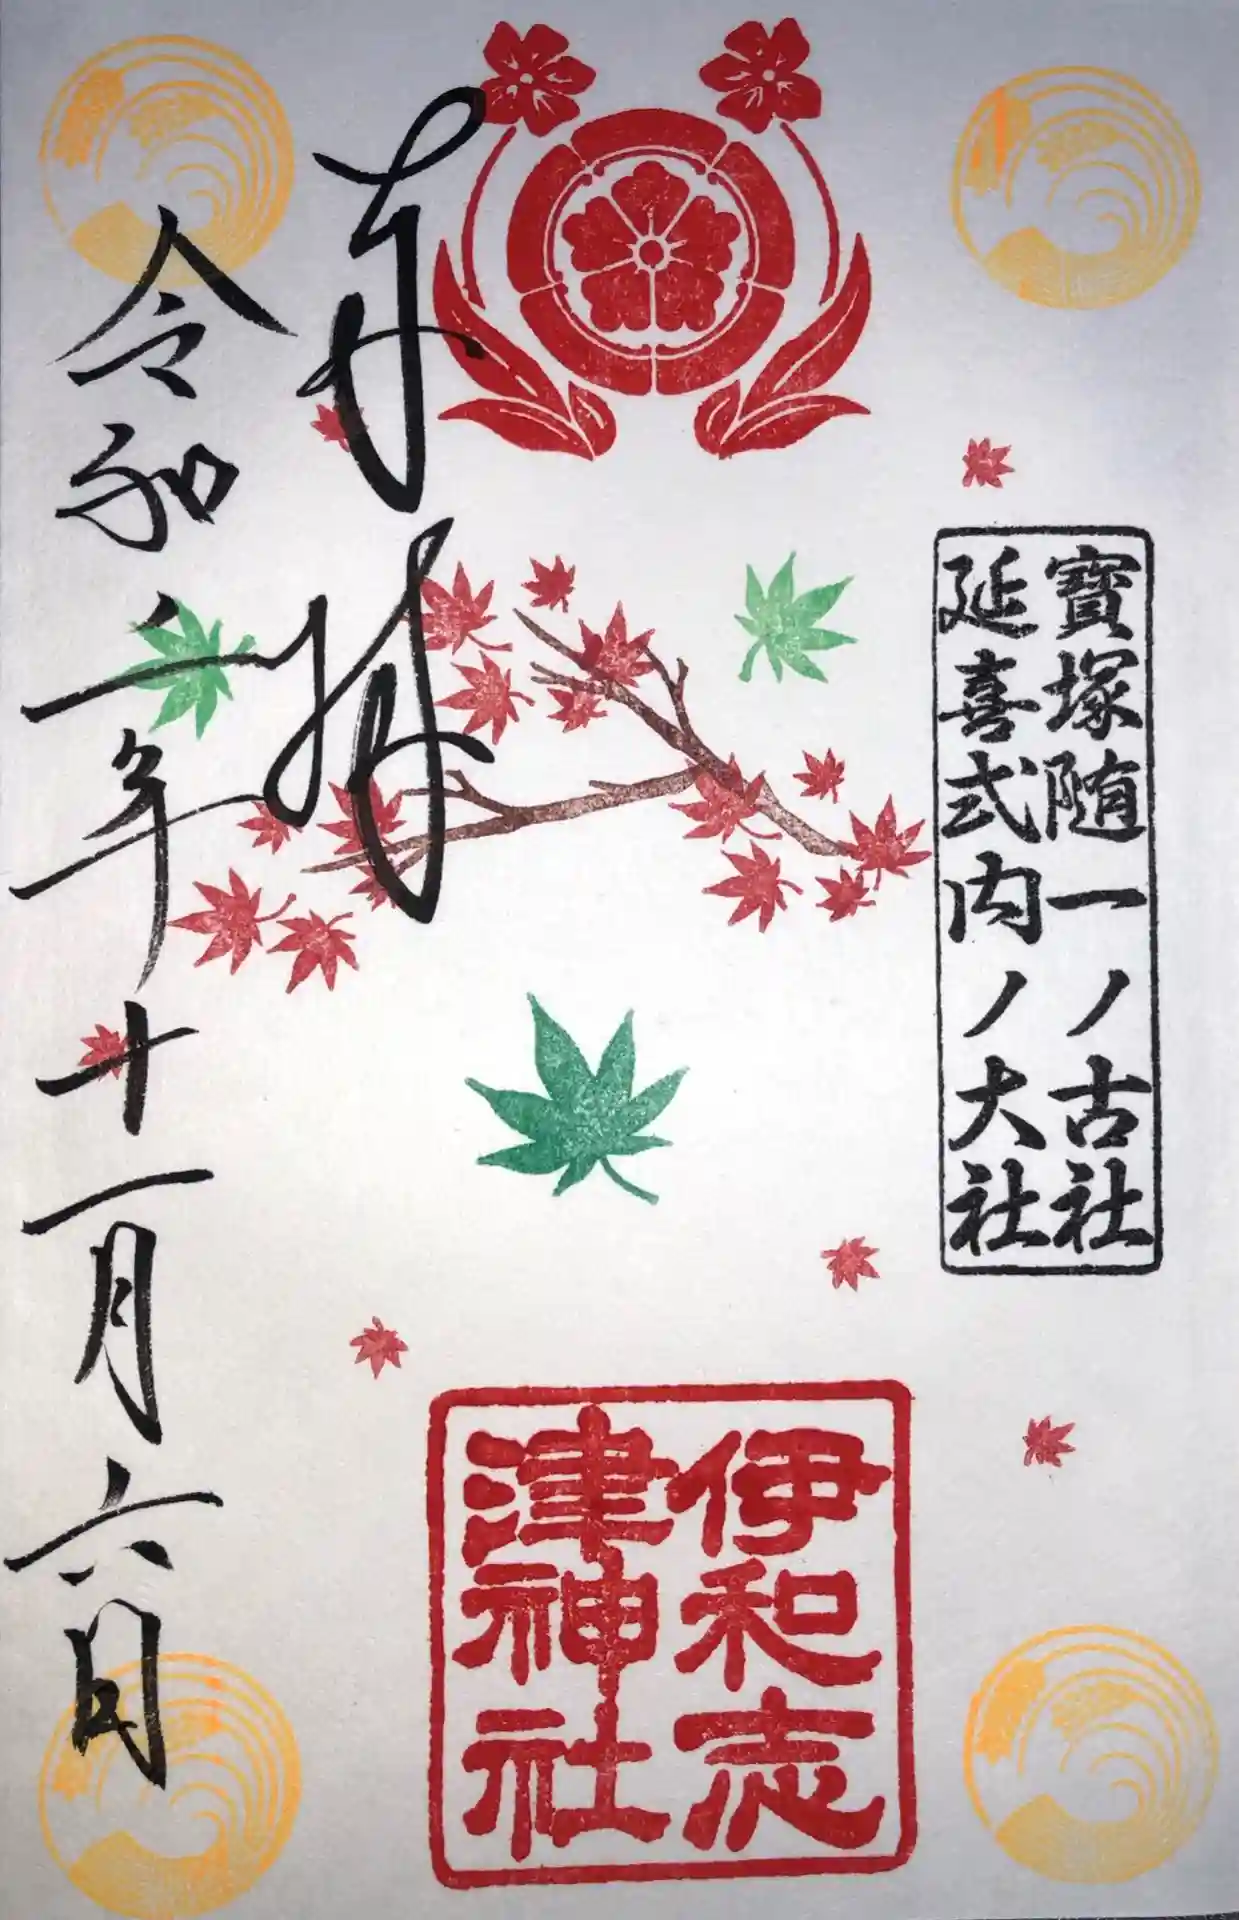 寶塚随一ノ古社
延喜式内ノ大社
奉拝
令和二年十一月六日
伊和志
津神社